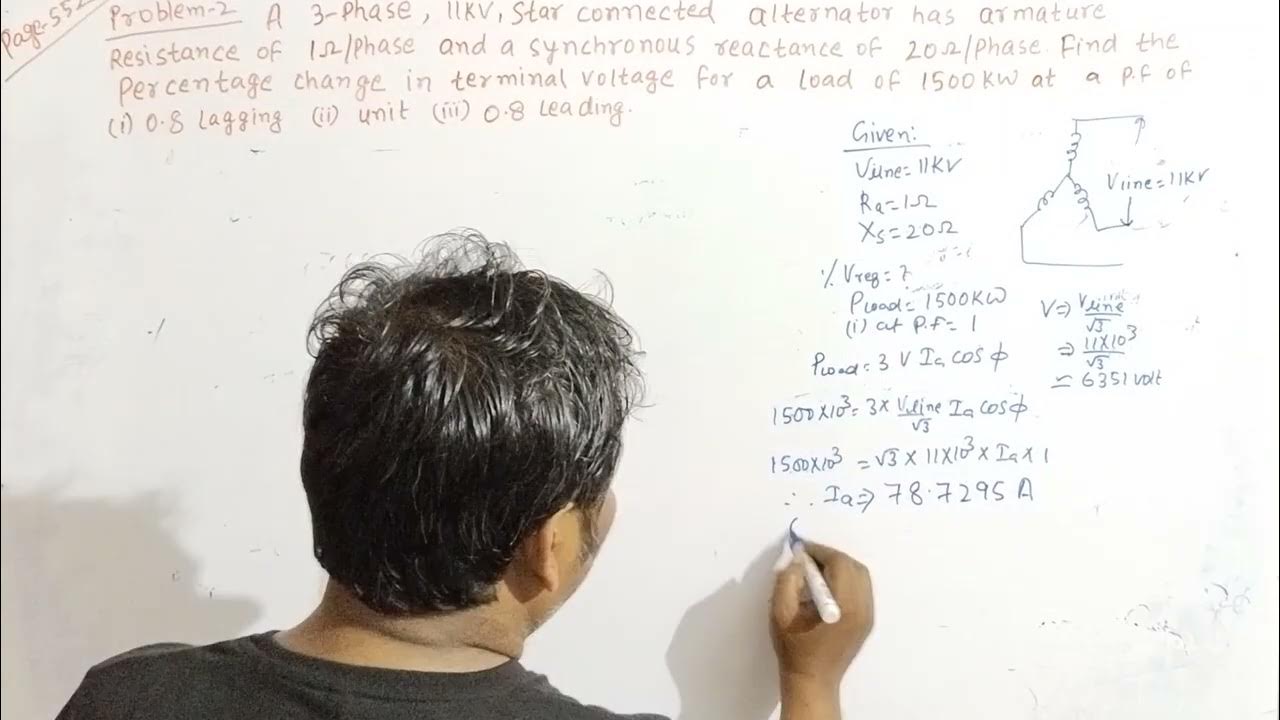 Page-552
Problem-2 A 3-Phase, 11KV, Star connected alternator has armature
Resistance of 1Ω/Phase and a synchronous reactance of 20Ω/Phase. Find the
Percentage change in terminal voltage for a load of 1500KW at a P.f of
(i) 0.8 lagging (ii) unit (iii) 0.8 Leading.
Given:
Vline=11KV
Ra=1Ω
Xs=20Ω
% Vreg=?
Pload=1500KW
(i) at P.f=1
Pload=3 V Ia cosϕ
1500×10³=3× Vline/√3 Ia cosϕ
1500×10³ =√3×11×10³×Ia×1
∴ Ia⇒78.7295 A
Vline=11KV
V⇒ Vline/√3
⇒ 11×10³/√3
≃ 6351 volt